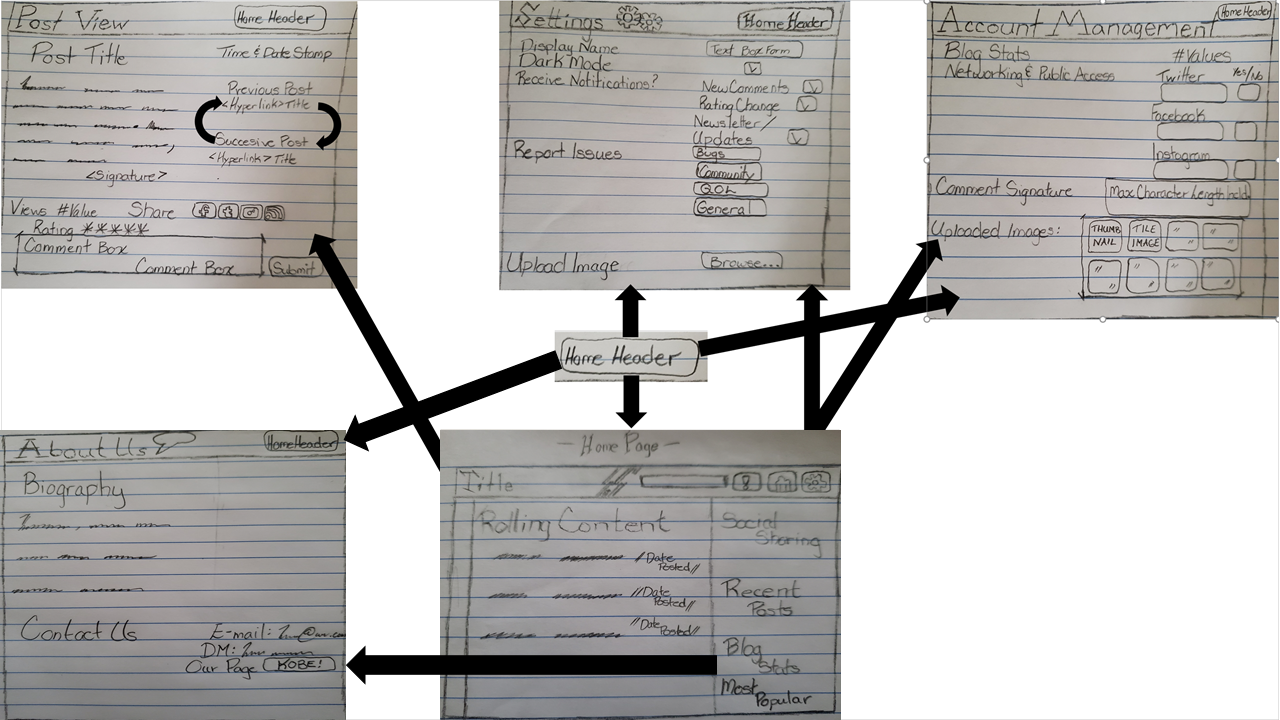 Post View
Home Header
Post Title
Time & Date Stamp
Previous Post
<Hyperlink> Title
Succesive Post
<Hyperlink> Title
<Signature>
Views #Value Share
Rating
Comment Box
Comment Box
Submit
Settings
Home Header
Display Name
Text Box Form
Dark Mode
Receive Notifications?
New Comments
Rating Change
Newsletter/
Updates
Report Issues
Bugs
Community
QOL
General
Upload Image
Browse...
Account Management
Home Header
Blog Stats
#Values
Networking & Public Access
Twitter
Yes/No
Facebook
Instagram
Comment Signature
Max Character Length
Uploaded Images:
THUMB
NAIL
TILE
IMAGE
Home Header
About Us
Home Header
Biography
Contact Us
E-mail:
DM:
Our Page KOBE!
- Home Page -
Title
Rolling Content
//Date
Posted//
//Date
Posted//
//Date
Posted//
Social
Sharing
Recent
Posts
Blog
Stats
Most
Popular